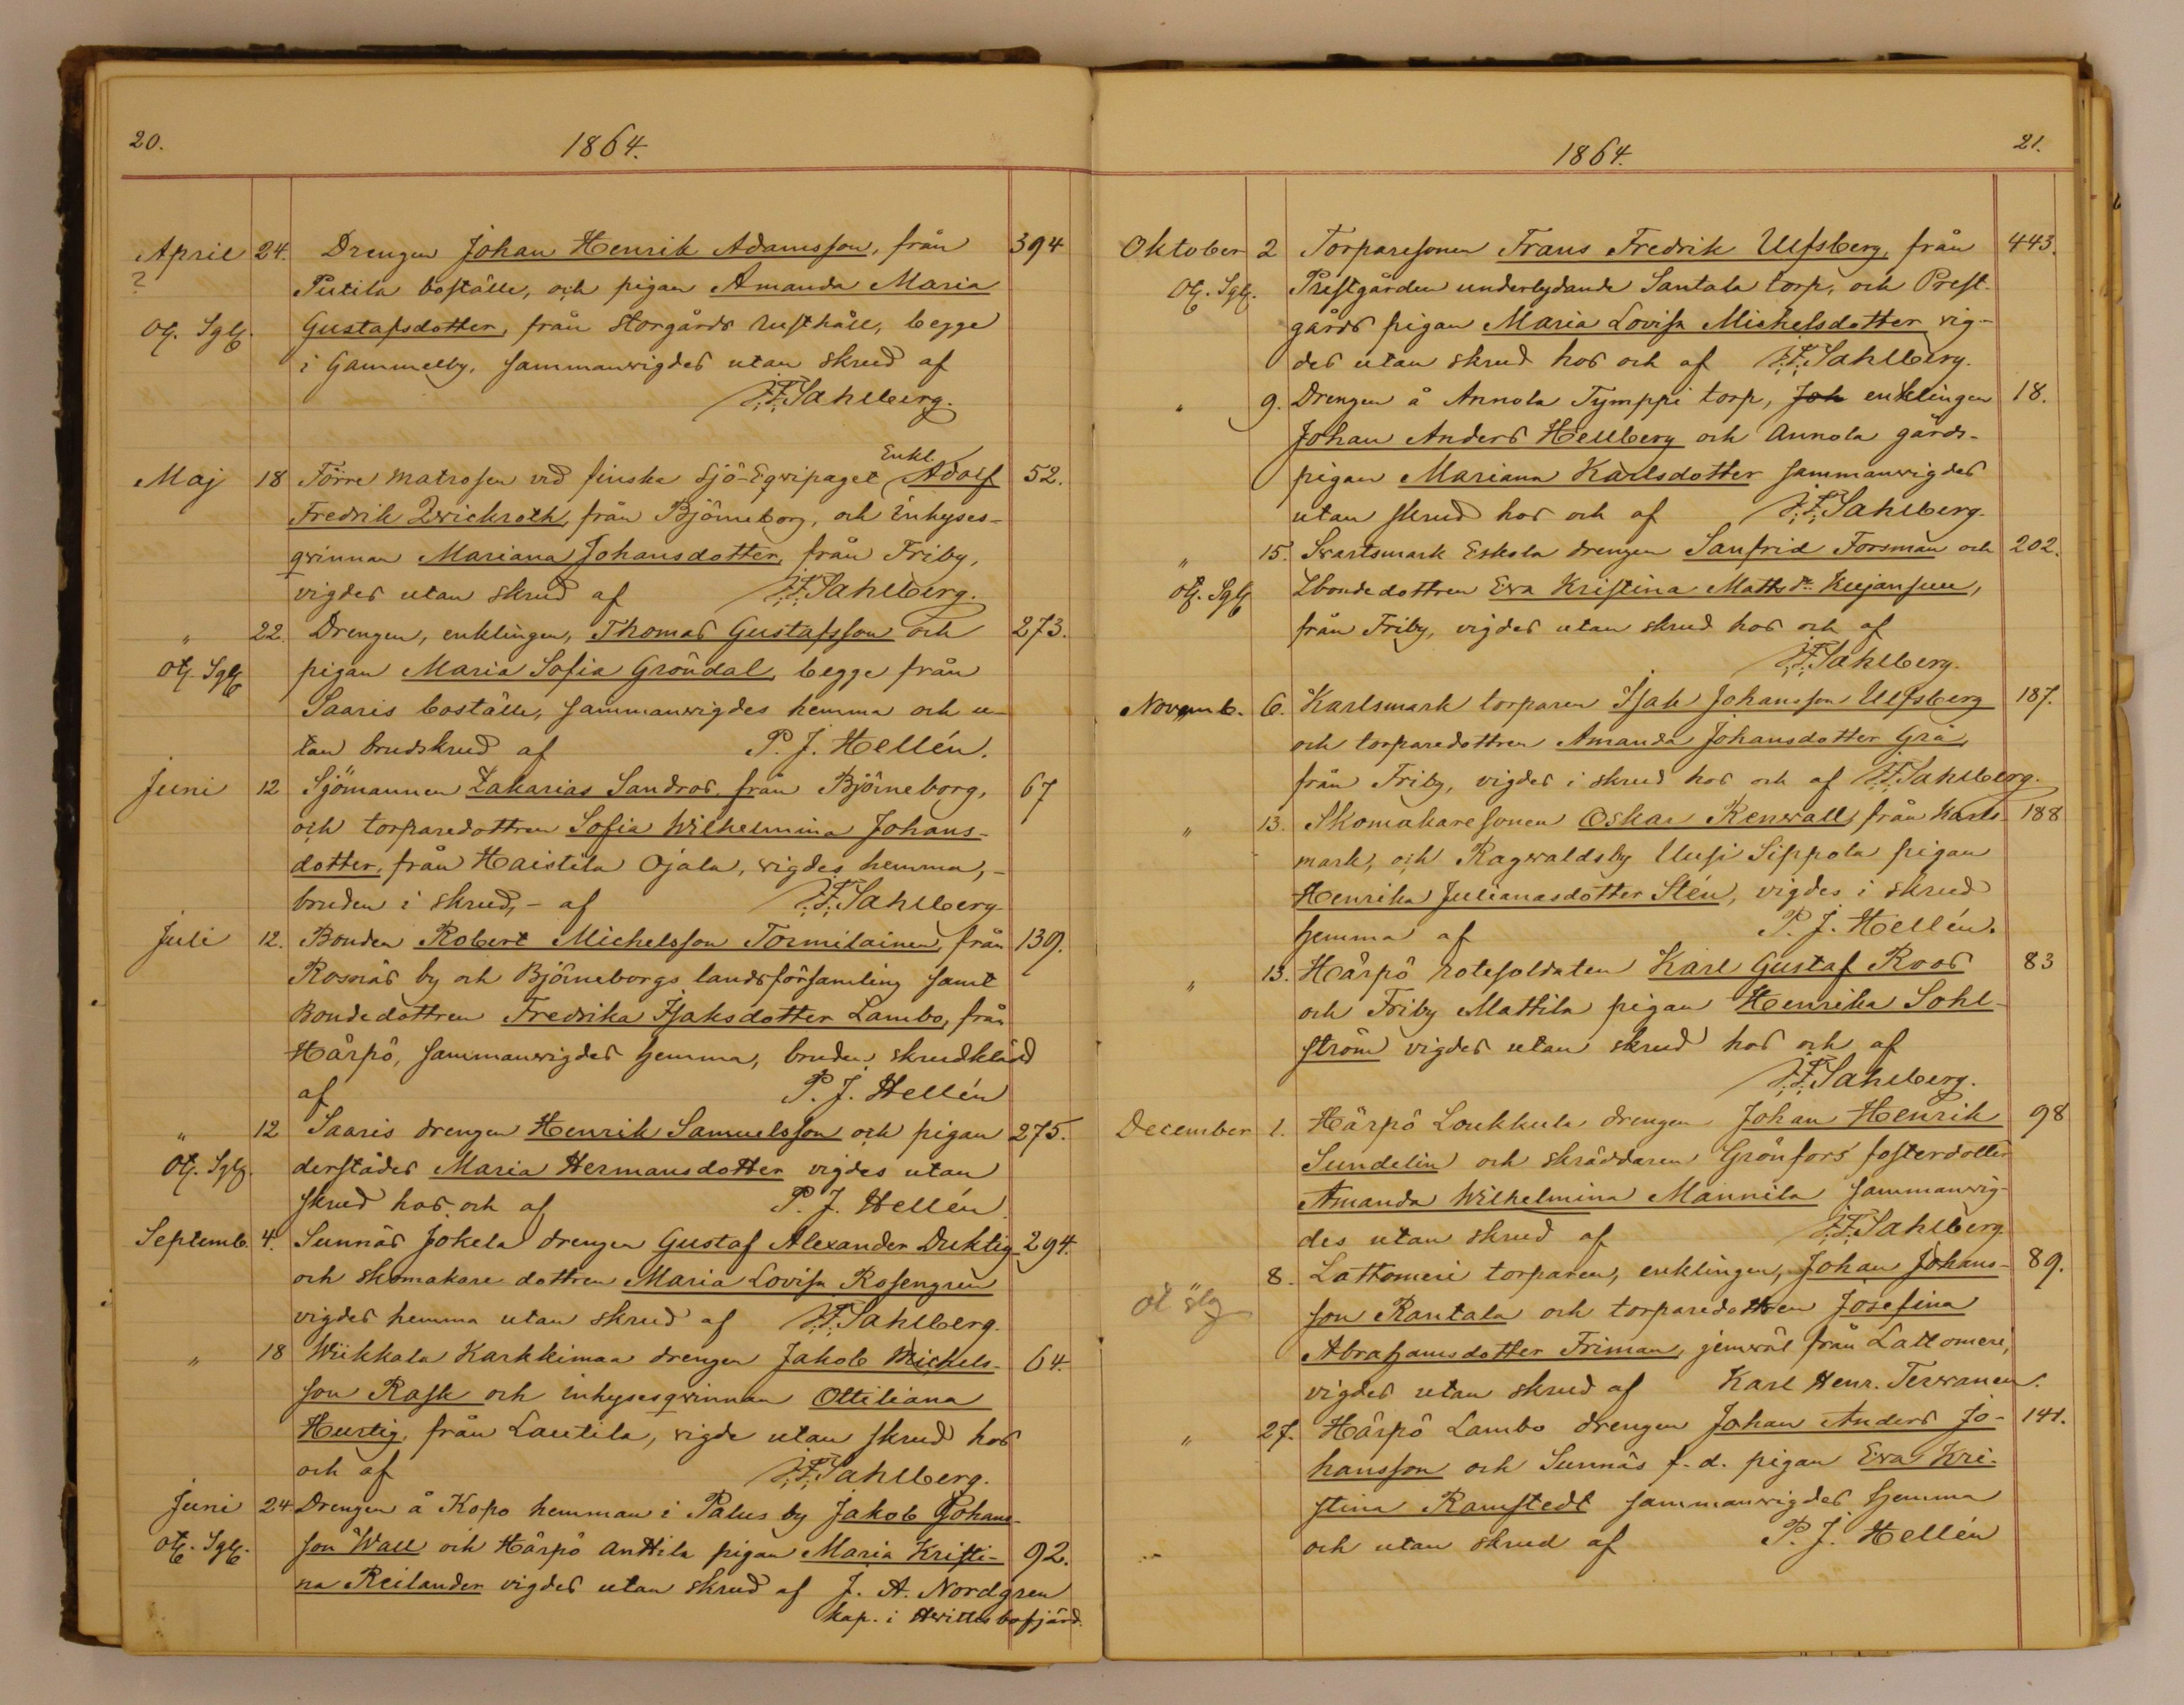 20.
1864.
April 24. Drengen Johan Henrik Adamsson, från 394
? Putila boställe, och pigan Amanda Maria
Gustafsdotter, från Storgårds rusthåll, begge
i Gammelby, sammanvigdes utan skrud af
F. F. Sahlberg.
Enkl.
Maj 18 Förre matrosen vid finska Sjö-Eqvipaget Adolf 52.
Fredrik Qvickroth, från Björneborg, och inhyses-
qvinnan Mariana Johansdotter, från Friby,
vigdes utan skrud af F. F. Sahlberg.
" 22. Drengen, enklingen, Thomas Gustafsson och 273.
pigan Maria Sofia Gröndal, begge från
Saaris boställe, sammanvigdes hemma och u-
tan brudskrud af P. J. Hellén.
Juni 12 Sjömannen Zakarias Sandros, från Björneborg, 67
och torparedottren Sofia Wilhelmina Johans-
dotter, från Haistila Ojala, vigdes hemma, -
bruden i skrud, - af F. F. Sahlberg
Juli 12. Bonden Robert Michelsson Tormilainen, från 139.
Rosnäs by och Björneborgs landsförsamling samt
Bondedottren Fredrika Isaksdotter Lambo, från
Härpö, sammanvigdes hemma, bruden skrudklädd
af P. J. Hellén
" 12 Saaris drengen Henrik Samuelsson och pigan 275.
derstädes Maria Hermansdotter vigdes utan
skrud hos och af P. J. Hellén.
Septemb. 4. Sunnäs Jokela drengen Gustaf Alexander Duktig 294.
och skomakare dottren Maria Lovisa Rosengren
vigdes hemma utan skrud af F. F. Sahlberg.
" 18 Wiikkala Karkkimaa drengen Jakob Michels- 64.
son Rask och inhysesqvinnan Ottiliana
Hurtig, från Lautila, vigde utan skrud hos
och af F. F. Sahlberg.
Juni 24 Drengen å Kopo hemman i Palus by Jakob Johans-
son Wall och Härpö Anttila pigan Maria Kristi- 92.
na Reilander vigdes utan skrud af J. A. Nordgren
kap. i Hvittisbofjärd.
1864.
21.
Oktober 2 Torparesonen Frans Fredrik Ulfsberg, från 443.
Prestgården underlydande Santala torp, och Prest-
gårds pigan Maria Lovisa Michelsdotter vig-
des utan skrud hos och af F. F. Sahlberg.
" 9. Drengen å Annola Tymppi torp, Joh enklingen 18.
Johan Anders Hellberg och Annola gårds-
pigan Mariana Karlsdotter sammanvigdes
utan skrud hos och af F. F. Sahlberg.
" 15. Svartsmark Eskola drengen Sanfrid Forsman och 202.
bondedottren Eva Kristina Matts dr
från Friby, vigdes utan skrud hos och af
F. F. Sahlberg.
Novemb. 6. Karlsmark torparen Isak Johansson Ulfsberg 187.
och torparedottren Amanda Johansdotter Grå,
från Friby, vigdes i skrud hos och af F. F. Sahlberg.
" 13. Skomakaresonen Oskar Renvall, från Karls- 188
mark, och Ragvaldsby Uusi Sippola pigan
Henrika Julianasdotter Stén, vigdes i skrud
hemma af P. J. Hellén.
" 13. Härpö rotesoldaten Karl Gustaf Roos 83
och Friby Mattila pigan Henrika Sohl-
ström vigdes utan skrud hos och af
F. F. Sahlberg.
December 1. Härpö Loukkula drengen Johan Henrik 98
Sundelin och skräddaren Grönfors fosterdotter
Amanda Wilhelmina Mannila sammanvig-
des utan skrud af F. F. Sahlberg.
8. Lattomeri torparen, enklingen, Johan Johans- 89.
son Rantala och torparedottren Josefina
Abrahamsdotter Friman, jemväl från Lattomeri,
vigdes utan skrud af Karl Henr. Terwanen.
" 27. Härpö Lambo drengen Johan Anders Jo- 141.
hansson och Sunnäs f.d. pigan Eva Kri-
stina Ramstedt sammanvigdes hemma
och utan skrud af P. J. Hellén